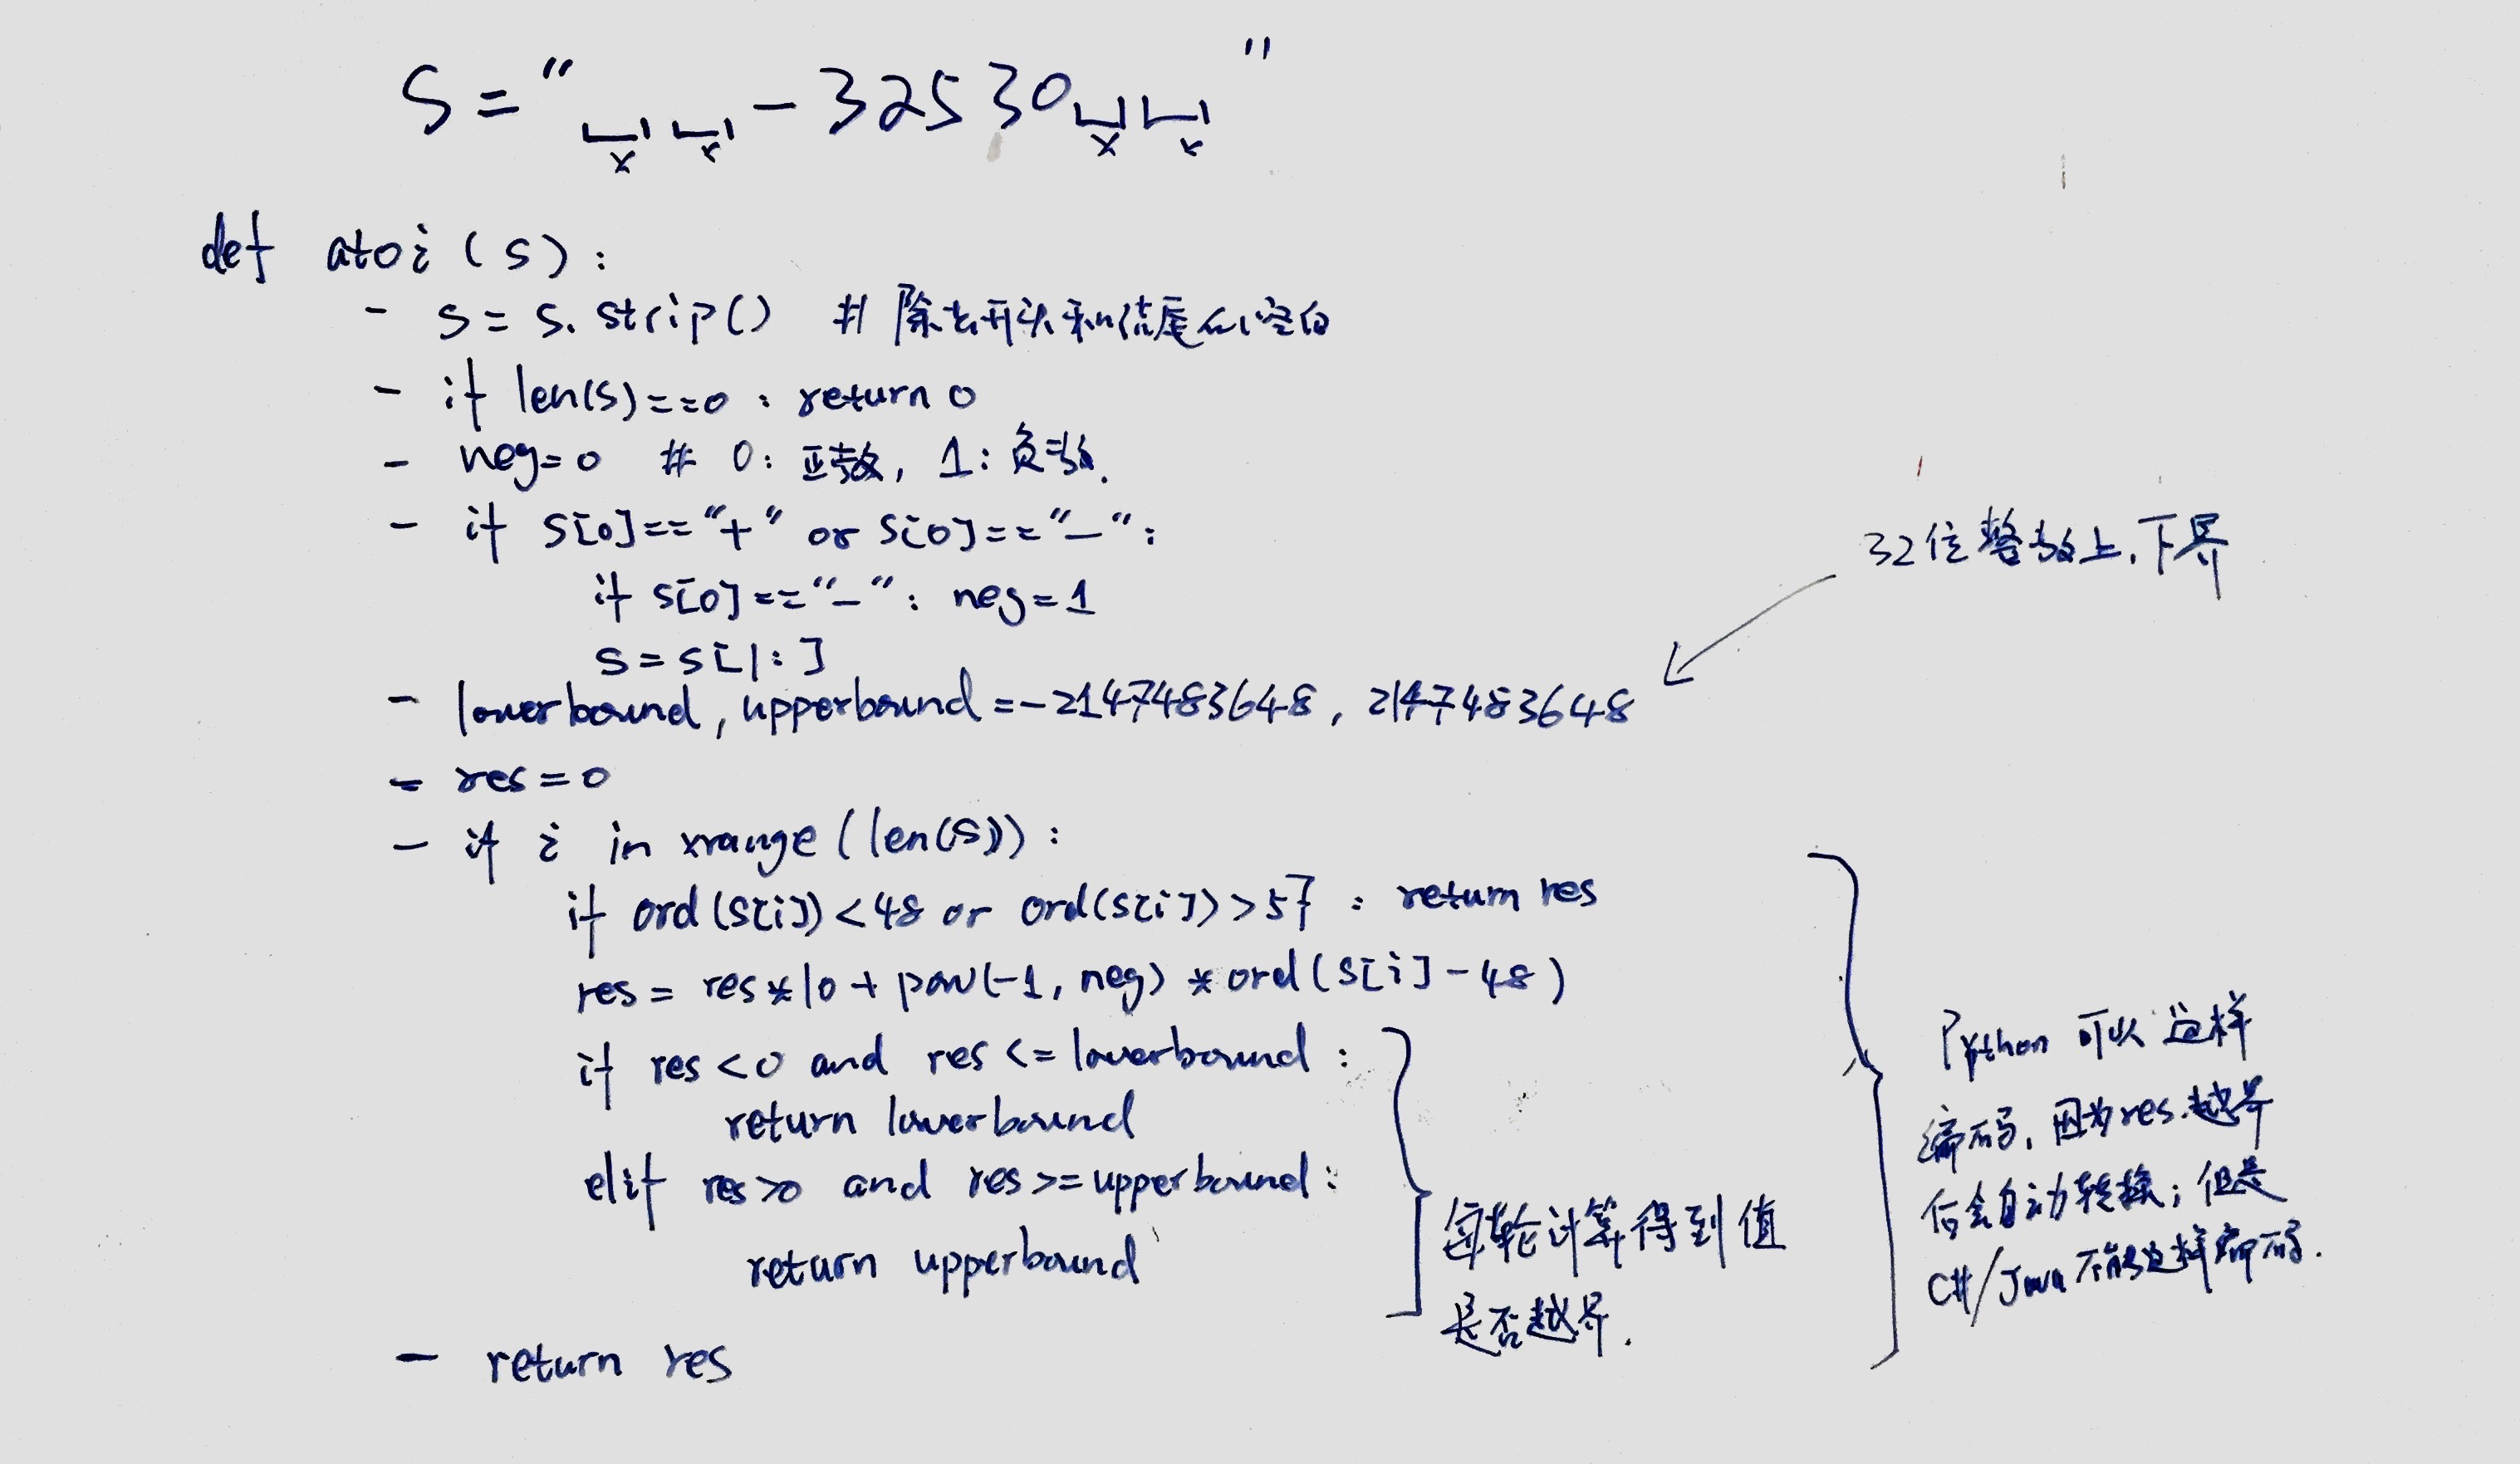 S = "␣␣-32530␣␣"
x x x x
def atoi (s) :
- s = s. strip() # 除去开头和结尾的空白
- if len(s)==0 : return 0
- neg=0 # 0: 正数, 1: 负数.
- if s[0]=="+" or s[0]=="-" :
if s[0]=="-" : neg=1
s=s[1:]
32位整数上.下界
- lowerbound, upperbound=-2147483648, 2147483648
- res=0
- if i in xrange (len(s)) :
if ord(s[i])<48 or ord(s[i])>57 : return res
res = res*10+pow(-1, neg) *ord(s[i]-48)
if res <0 and res <= lowerbound :
return lowerbound
elif res>0 and res >= upperbound :
return upperbound
每轮计算得到值
是否越界.
Python 可以这样
编码, 因为res越界
后会自动转换; 但是
C#/Java不能这样编码.
- return res